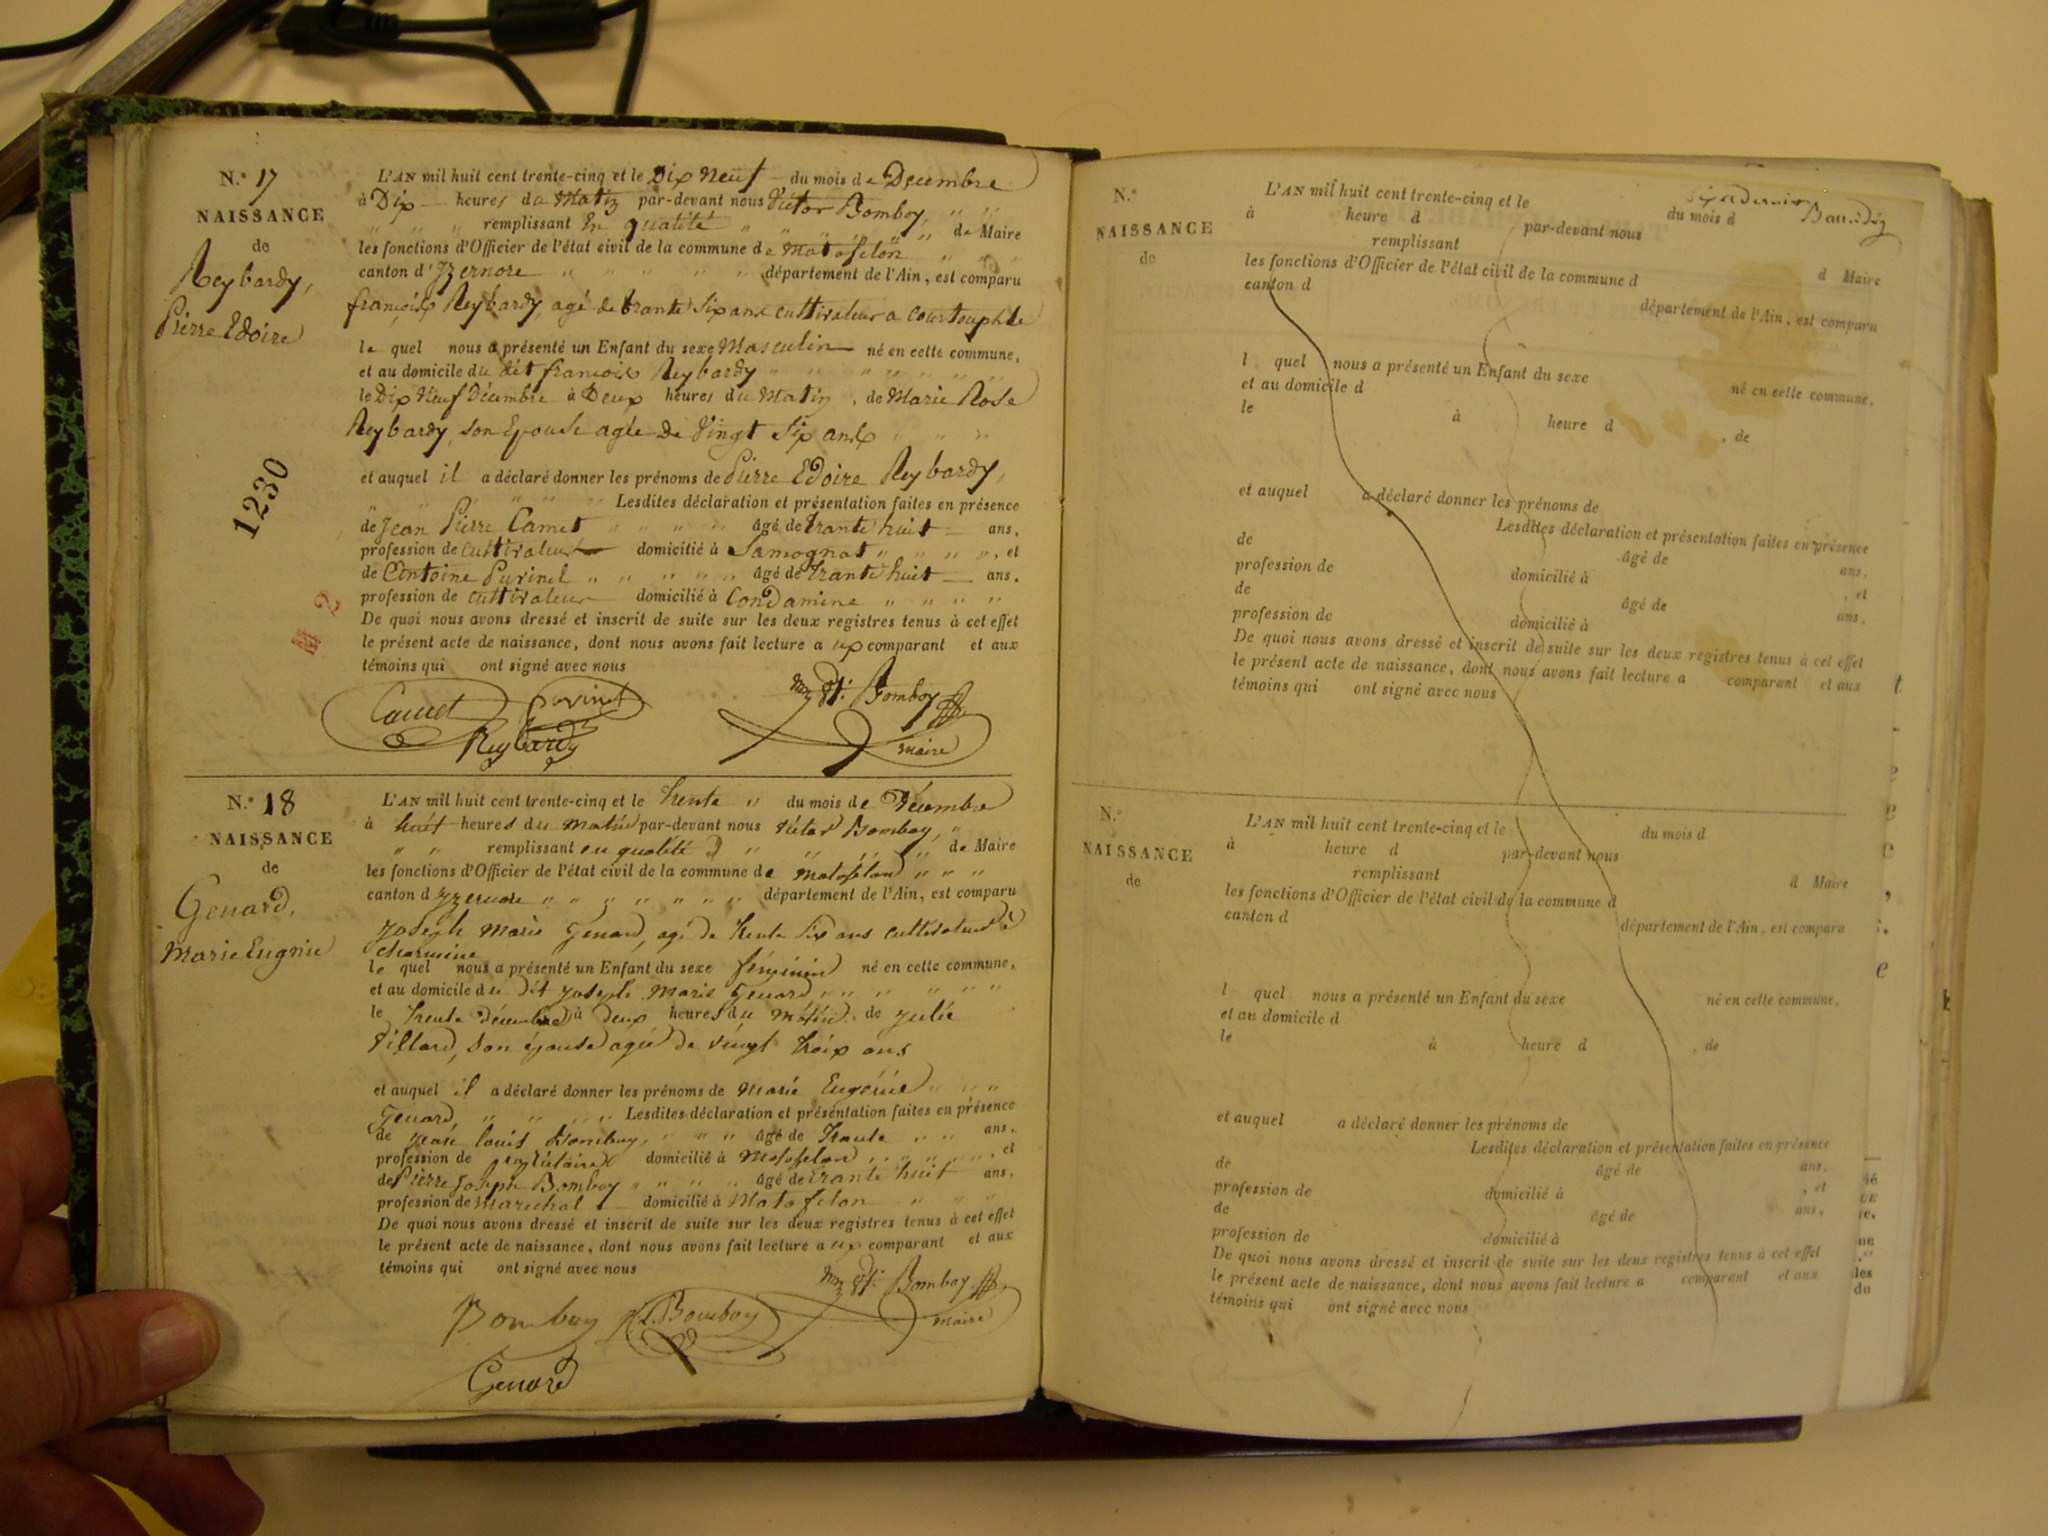 N.° 17
NAISSANCE
de
Reybardy,
Pierre Edoire
L'AN mil huit cent trente-cinq et le Dix Neuf du mois de Decembre
à Dix heures du Matin par-devant nous Victor Bomboy, " "
" " " remplissant En qualité " " " " " de Maire
les fonctions d'Officier de l'état civil de la commune de Matafelon " " "
canton d'Izernore " " " " " " département de l'Ain, est comparu
françois Reybardy, agé de trante Six ans cultivateur a Courtouphle
le quel nous a présenté un Enfant du sexe Masculin né en cette commune,
et au domicile du dit françois Reybardy " " " " " "
le Dix Neuf Décembre à Deux heures du Matin, de Marie Rose
Reybardy, son Epouse agée de Vingt Six ans " " "
et auquel il a déclaré donner les prénoms de Pierre Edoire Reybardy,
" " " " " Lesdites déclaration et présentation faites en présence
de Jean Pierre Camet " " " " " âgé de trante huit ans,
profession de cultivateur domicilié à Samognat " " " ", et
de Antoine Purinel " " " " " âgé de trante huit ans,
profession de cultivateur domicilié à Condamine " " " "
De quoi nous avons dressé et inscrit de suite sur les deux registres tenus à cet effet
le présent acte de naissance, dont nous avons fait lecture aux comparant et aux
témoins qui ont signé avec nous
1230
2
Bomboy
Camet
Reybardy
maire
N.° 18
NAISSANCE
de
Genard,
Marie Eugénie
L'AN mil huit cent trente-cinq et le trente " du mois de Décembre
à huit heures du matin par-devant nous Victor Bomboy, "
" " remplissant en qualité d " " " " de Maire
les fonctions d'Officier de l'état civil de la commune de Matafelon " " "
canton d'Izernore " " " " " " " département de l'Ain, est comparu
Joseph Marie Genard, agé de trente six ans cultivateur à
Charmine
le quel nous a présenté un Enfant du sexe féminin né en cette commune,
et au domicile du dit Joseph Marie Genard " " " " " "
le trente décembre à deux heures du matin, de Julie
Pillard, son épouse agée de vingt troix ans
et auquel il a déclaré donner les prénoms de Marie Eugénie " " "
Genard, " " " " " Lesdites déclaration et présentation faites en présence
de Jean louis Bomboy, " " " âgé de trante " " ans,
profession de domicilié à Matafelon " " " " ", et
de Pierre Joseph Bomboy " " " " âgé de trante huit ans,
profession de Marechal domicilié à Matafelon " " "
De quoi nous avons dressé et inscrit de suite sur les deux registres tenus à cet effet
le présent acte de naissance, dont nous avons fait lecture aux comparant et aux
témoins qui ont signé avec nous
Bomboy
Bomboy Bomboy
maire
Genard
N.°
NAISSANCE
de
L'AN mil huit cent trente-cinq et le du mois d
à heure d par-devant nous
remplissant d Maire
les fonctions d'Officier de l'état civil de la commune d
canton d département de l'Ain, est comparu
l quel nous a présenté un Enfant du sexe né en cette commune,
et au domicile d
le à heure d , de
et auquel a déclaré donner les prénoms de
Lesdites déclaration et présentation faites en présence
de âgé de ans,
profession de domicilié à , et
de âgé de ans,
profession de domicilié à
De quoi nous avons dressé et inscrit de suite sur les deux registres tenus à cet effet
le présent acte de naissance, dont nous avons fait lecture a comparant et aux
témoins qui ont signé avec nous
N.°
NAISSANCE
de
L'AN mil huit cent trente-cinq et le du mois d
à heure d par-devant nous
remplissant d Maire
les fonctions d'Officier de l'état civil de la commune d
canton d département de l'Ain, est comparu
l quel nous a présenté un Enfant du sexe né en cette commune,
et au domicile d
le à heure d , de
et auquel a déclaré donner les prénoms de
Lesdites déclaration et présentation faites en présence
de âgé de ans,
profession de domicilié à , et
de âgé de ans,
profession de domicilié à
De quoi nous avons dressé et inscrit de suite sur les deux registres tenus à cet effet
le présent acte de naissance, dont nous avons fait lecture a comparant et aux
témoins qui ont signé avec nous